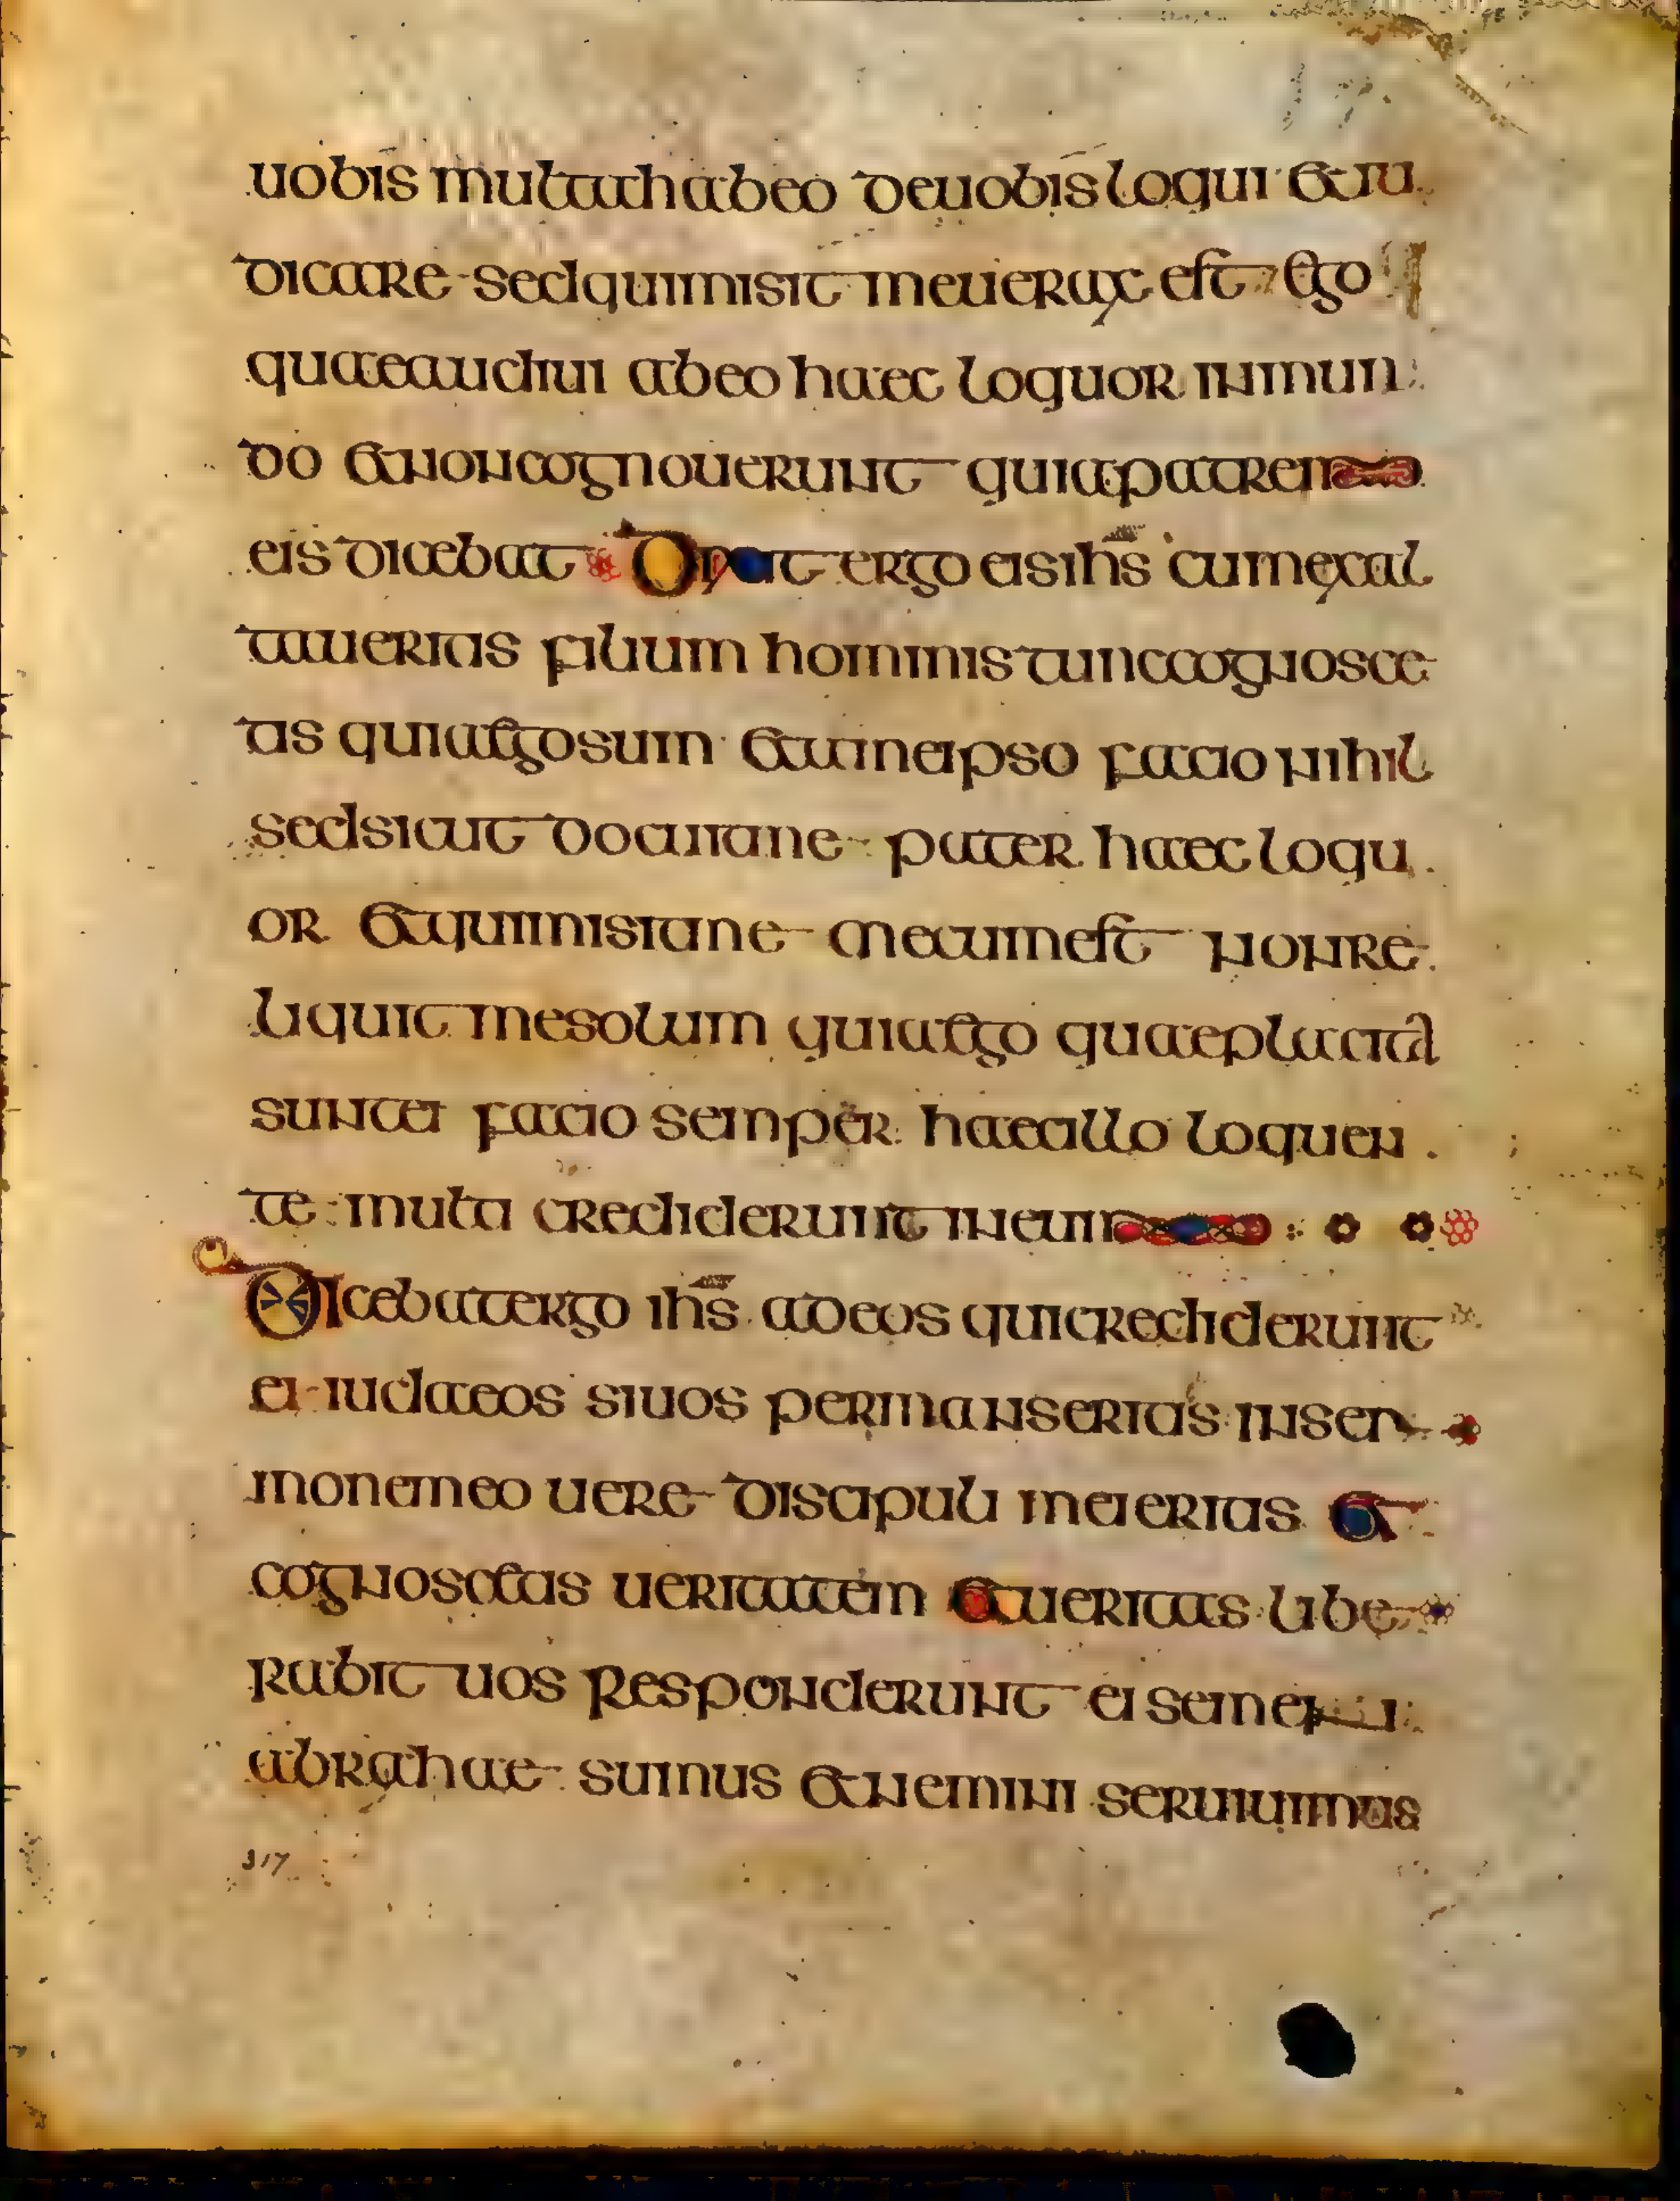 uobis multa habeo de uobis loqui et iu
dicare sed qui misit me uerax est ego
quae audiui ab eo haec loquor in mun
do et non cognouerunt quia patrem
eis dicebat Dixit ergo eis ihs cum exal
taueritis filium hominis tunc cognosce
tis quia ego sum et a me ipso facio nihil
sed sicut docuit me pater haec loqu
or et qui misit me mecum est non re
liquit me solum quia ego quae placita
sunt ei facio semper haec illo loquen
te multi crediderunt in eum
Dicebat ergo ihs ad eos qui crediderunt
ei iudaeos si uos permanseritis in ser
mone meo uere discipuli mei eritis et
cognoscetis ueritatem et ueritas libe
rabit uos Responderunt ei semen
abrahae sumus et nemini seruiuimus
317